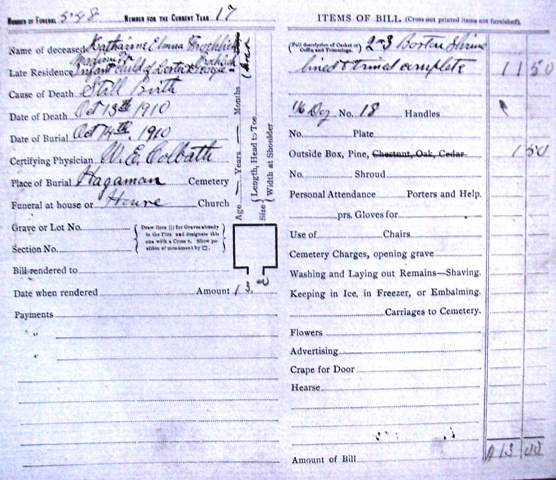 NUMBER OF FUNERAL 548 NUMBER FOR THE CURRENT YEAR 17
Name of deceased Katharine Elmua
Late Residence Infant child of
Cause of Death Still Birth
Date of Death Oct 13th 1910
Date of Burial Oct 14th, 1910
Certifying Physician W. E. Colbath
Place of Burial Hagaman Cemetery
Funeral at house or House Church
Grave or Lot No.
Section No.
{ Draw lines ||| for Graves already in the Plot and designate this one with a Cross †. Show position of monument by □. }
Age — Years — Months
Size { Length, Head to Toe. Width at Shoulder
Bill rendered to
Date when rendered Amount 13.00
Payments
ITEMS OF BILL. (Cross out printed items not furnished).
(Full description of Casket or Coffin and Trimmings. 2-3 Boston Shrine
lined & trimd complete 11 50
1/6 Dz No. 18 Handles
No. Plate
Outside Box, Pine, Chestnut, Oak, Cedar 1 50
No. Shroud
Personal Attendance Porters and Help.
prs. Gloves for
Use of Chairs
Cemetery Charges, opening grave
Washing and Laying out Remains—Shaving.
Keeping in Ice, in Freezer, or Embalming.
Carriages to Cemetery.
Flowers
Advertising
Crape for Door
Hearse
Amount of Bill $13 00